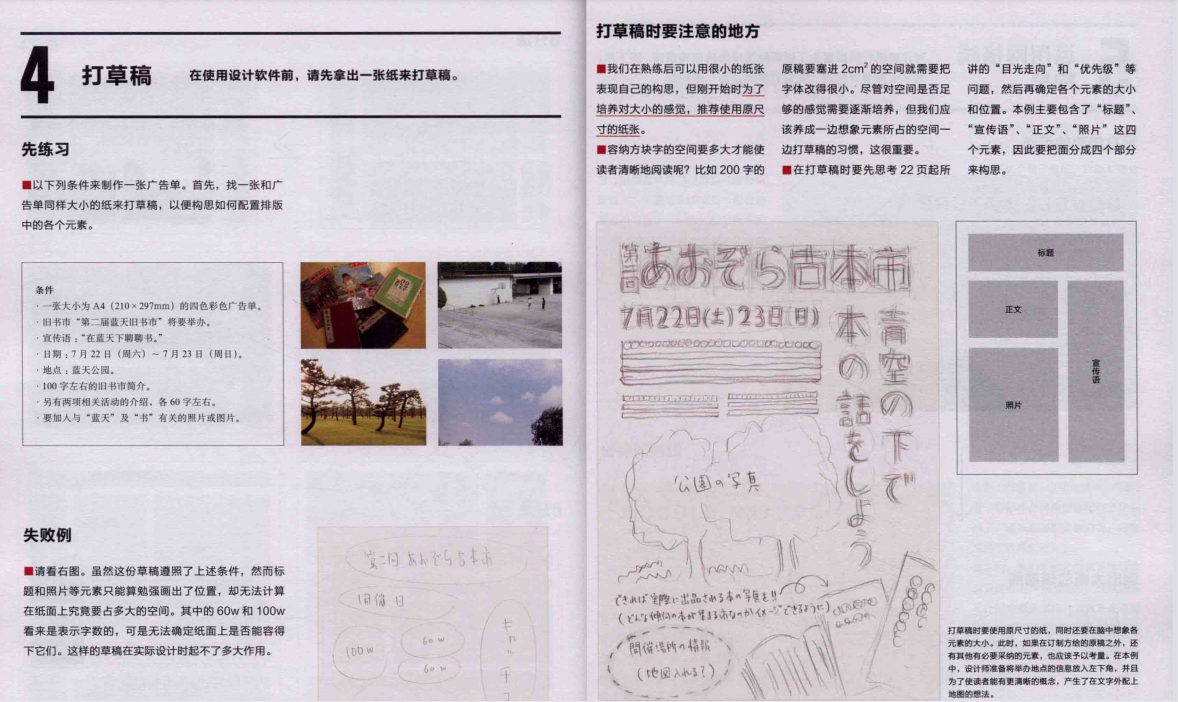 4 打草稿 在使用设计软件前，请先拿出一张纸来打草稿。
先练习
■以下列条件来制作一张广告单。首先，找一张和广
告单同样大小的纸来打草稿，以便构思如何配置排版
中的各个元素。
条件
· 一张大小为 A4（210×297mm）的四色彩色广告单。
· 旧书市“第二届蓝天旧书市”将要举办。
· 宣传语：“在蓝天下聊聊书。”
· 日期：7 月 22 日（周六）～ 7 月 23 日（周日）。
· 地点：蓝天公园。
· 100 字左右的旧书市简介。
· 另有两项相关活动的介绍，各 60 字左右。
· 要加入与“蓝天”及“书”有关的照片或图片。
失败例
■请看右图。虽然这份草稿遵照了上述条件，然而标
题和照片等元素只能算勉强画出了位置，却无法计算
在纸面上究竟要占多大的空间。其中的 60w 和 100w
看来是表示字数的，可是无法确定纸面上是否能容得
下它们。这样的草稿在实际设计时起不了多大作用。
第二回 あおぞら古本市
開催日
100w
60w
60w
キャッチコ
打草稿时要注意的地方
■我们在熟练后可以用很小的纸张
表现自己的构思，但刚开始时为了
培养对大小的感觉，推荐使用原尺
寸的纸张。
■容纳方块字的空间要多大才能使
读者清晰地阅读呢？比如 200 字的
原稿要塞进 2cm² 的空间就需要把
字体改得很小。尽管对空间是否足
够的感觉需要逐渐培养，但我们应
该养成一边想象元素所占的空间一
边打草稿的习惯，这很重要。
■在打草稿时要先思考 22 页起所
讲的“目光走向”和“优先级”等
问题，然后再确定各个元素的大小
和位置。本例主要包含了“标题”、
“宣传语”、“正文”、“照片”这四
个元素，因此要把面分成四个部分
来构思。
第二回
あおぞら古本市
7月22日(土)23日(日)
青空の下で
本の話をしよう
公園の写真
できれば実際に出品される本の写真を!!
(どんな傾向の本が集まる市なのかイメージできるように)
開催場所の情報
(地図入れる？)
标题
正文
宣传语
照片
打草稿时要使用原尺寸的纸，同时还要在脑中想象各
元素的大小。此时，如果在订制方给的原稿之外，还
有其他有必要采纳的元素，也应该予以考量。在本例
中，设计师准备将举办地点的信息放入左下角，并且
为了使读者能有更清晰的概念，产生了在文字外配上
地图的想法。